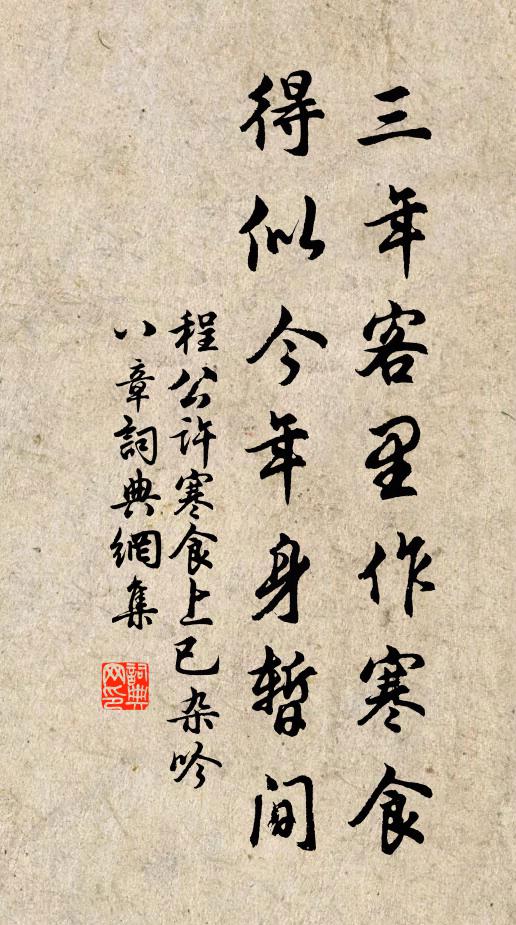 三年客里作寒食
得似今年身暫间
程公许寒食上巳杂吟
八章詞典網集
詞典网印